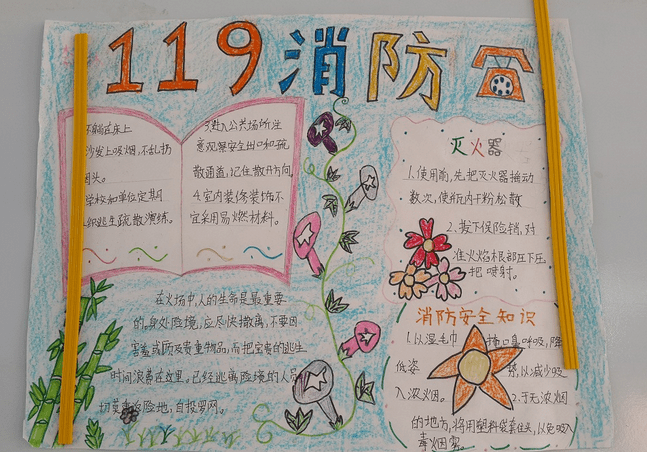 119消防
不躺在床上
沙发上吸烟,不乱扔
因头。
学校和单位定期
织逃生疏散演练。
3.进入公共场所注
意观察安全出口和疏
散通道,记住散开方向
4.室内装修装饰不
宜采用易燃材料。
灭火器
1.使用前,先把灭火器摇动
数次,使瓶内干粉松散
2.拔下保险销,对
准火焰根部压下压
把喷射。
在火场中,人的生命是最重要
的,身处险境,应尽快撤离,不要因
害羞或顾及贵重物品,而把宝贵的逃生
时间浪费在这里。已经逃离险境的人员
切莫重返险地,自投罗网。
消防安全知识
1.以湿毛巾 捂口鼻呼吸,降
低姿 势,以减少吸
入浓烟。 2.于无浓烟
的地方,将用塑料袋套住头,以免吸入
毒烟雾。